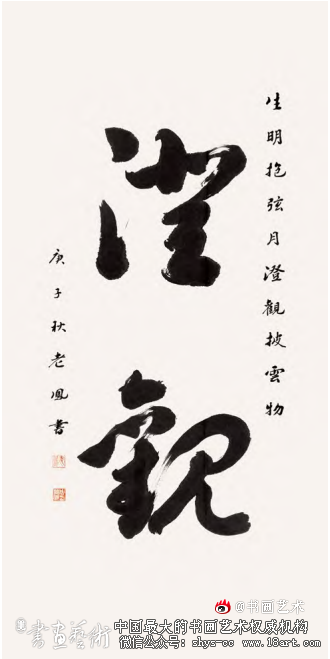 生明抱弦月澄觀披雲物
澄
觀
庚子秋老鳳書
@书画艺术
书画艺术
中国最大的书画艺术权威机构
微信公众号：shys-cc www.18art.com